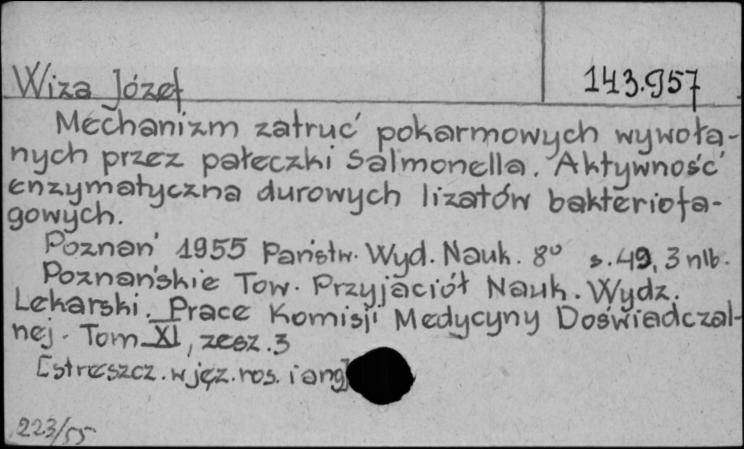 Wiza Józef
143.957
Mechanizm zatruć pokarmowych wywoła-
nych przez pałeczki Salmonella. Aktywność
enzymatyczna durowych lizatów bakteriofa-
gowych.
Poznań 1955 Państw. Wyd. Nauk. 8º s. 49, 3 nlb.
Poznańskie Tow. Przyjaciół Nauk. Wydz.
Lekarski. Prace Komisji Medycyny Doświadczal-
nej. Tom XI, zesz. 3
[streszcz. w jęz. ros. i ang]
223/55